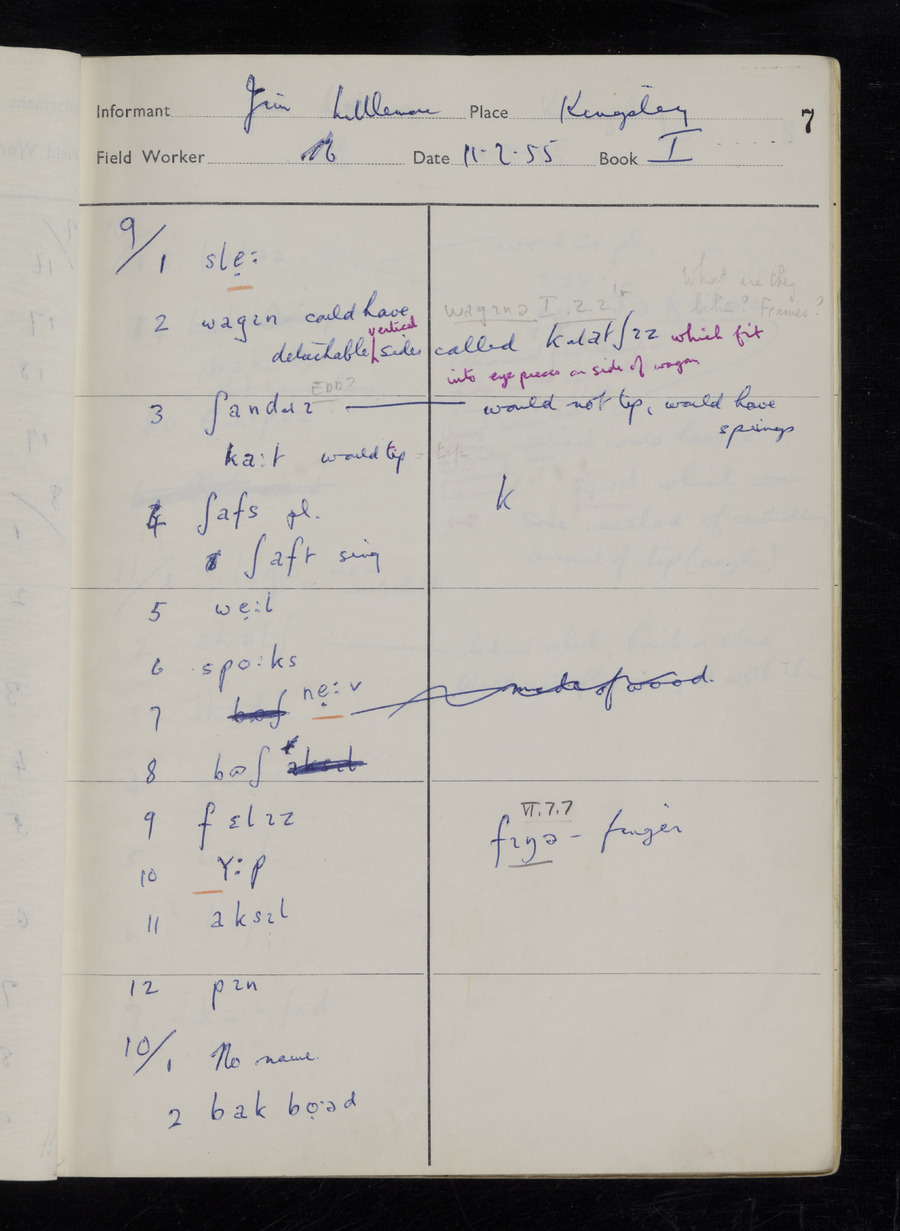 Informant Jim Place Kingsley 7
Field Worker Date 11·2·55 Book I
9/1 slẹ:
What are they
like? Frames?
wagɪnə I.2.2
2 wagɪn could have
detachable vertical sides called which fit
into eye pieces on side of wagon
EDD?
3 would not tip, would have
springs
ka:t would tip
4 ʃafs pl. k
ʃaft sing
5 wẹ:l
6 spo:ks
7 bɷʃ nẹ:v made of wood.
8 bɷʃ aksɪl
9 fɛlɪz
VI.7.7
fɪŋə – finger
10 Y:p
11 aksɪl
12 pɪn
10/1 No name
2 bak bọ:əd